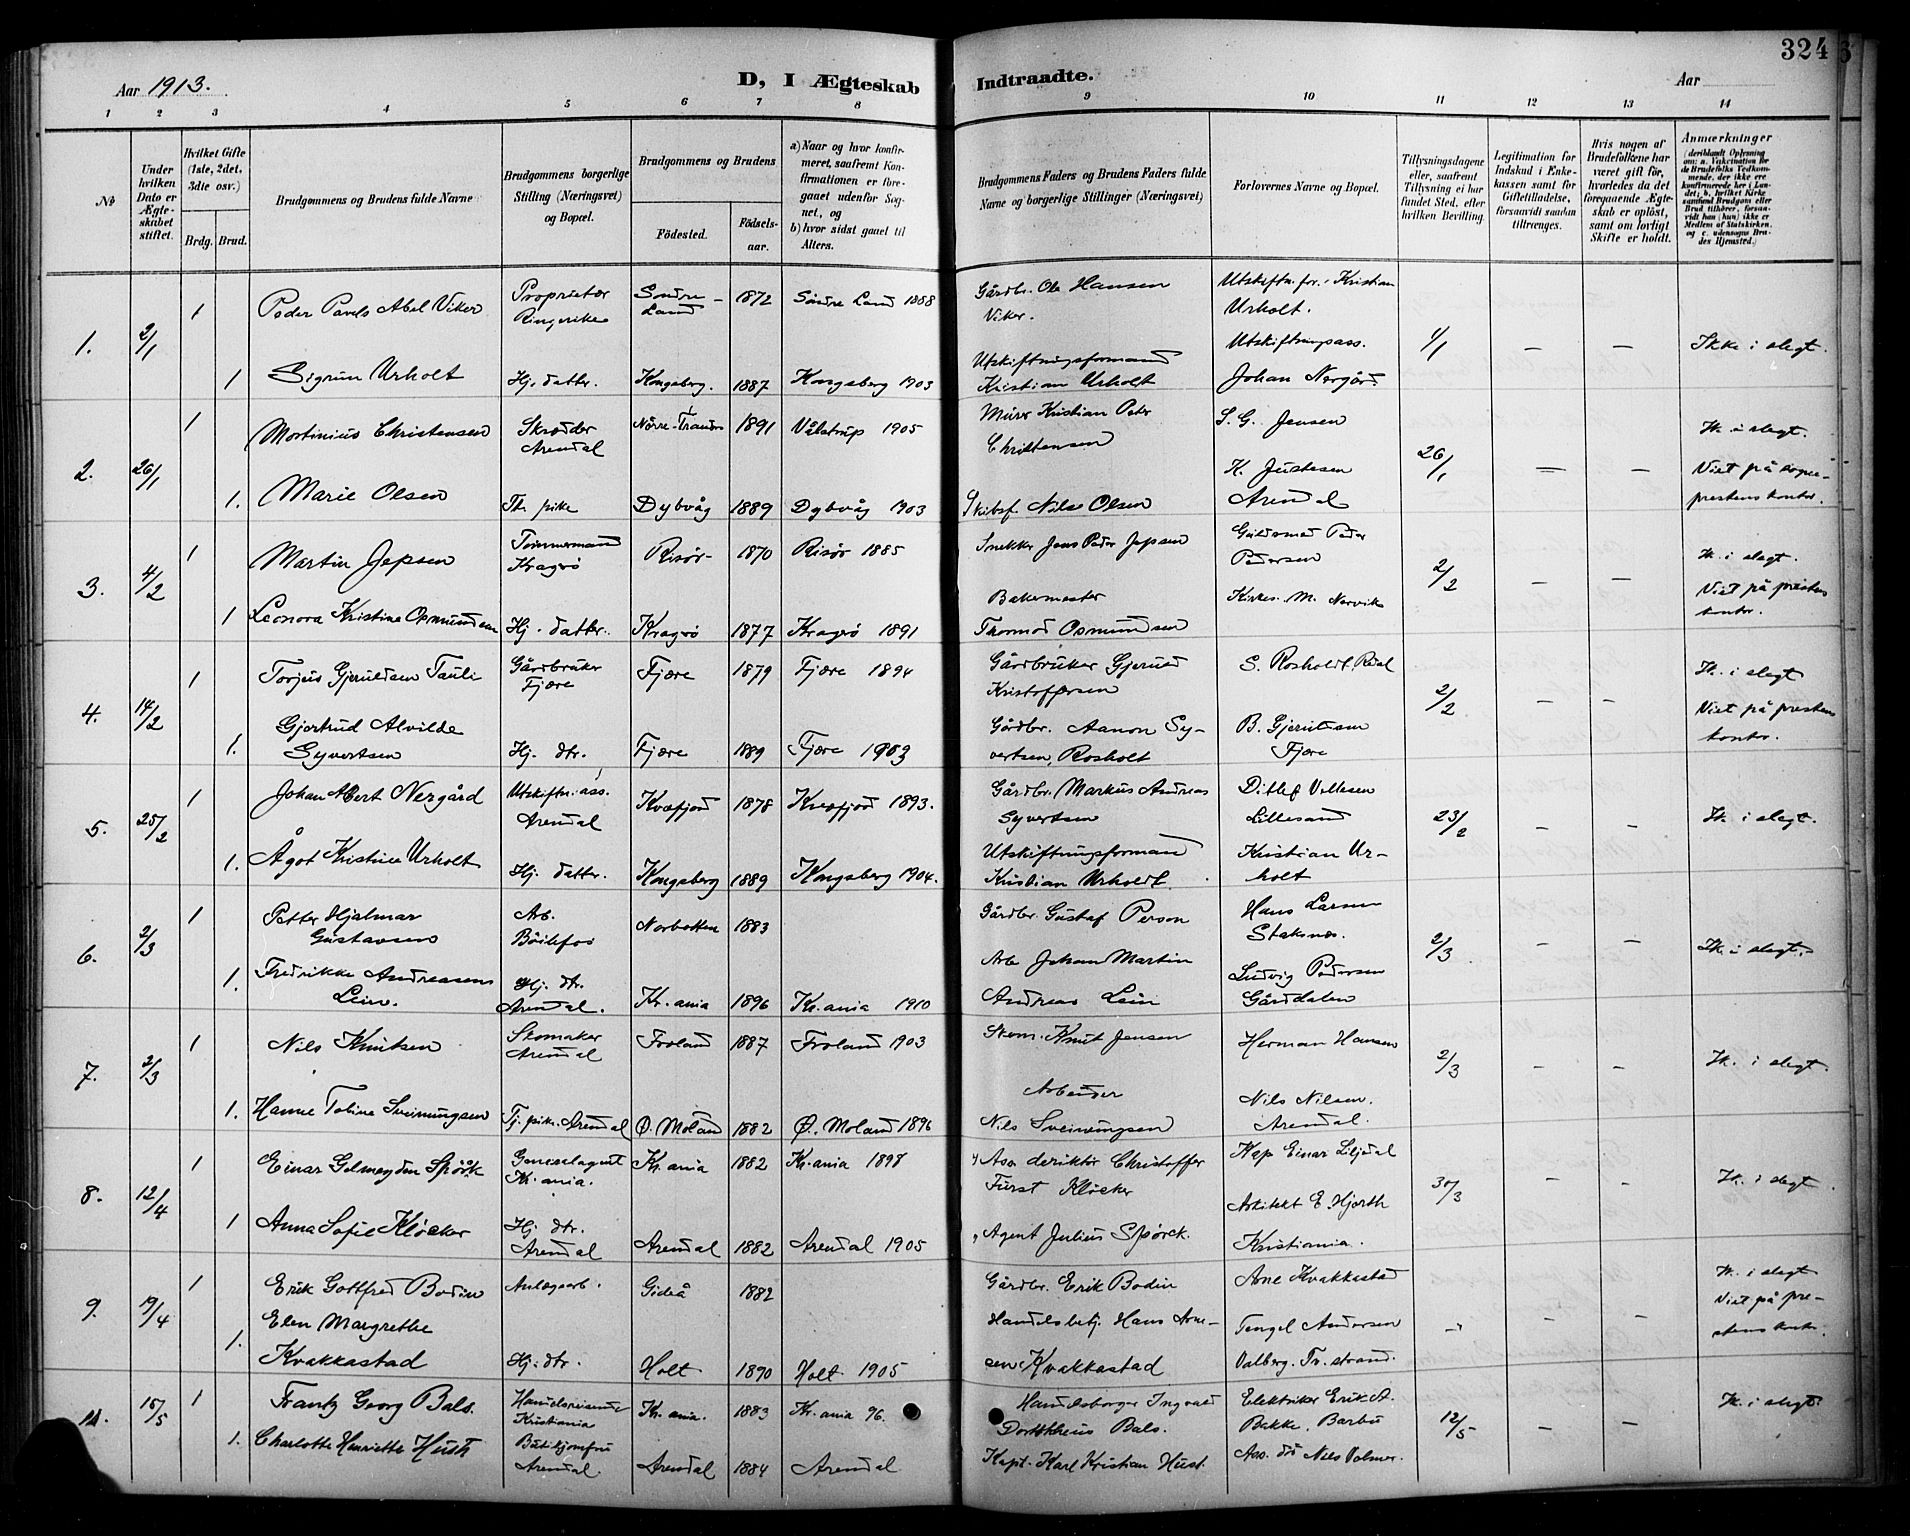 324
Aar 1913.
D, I Ægteskab Indtraadte.
Aar
1 2 3 4 5 6 7 8 9 10 11 12 13 14
No
Under hvilken Dato er Ægteskabet stiftet.
Hvilket Gifte (1ste, 2det, 3die osv.)
Brdg. Brud.
Brudgommens og Brudens fulde Navne
Brudgommens borgerlige Stilling (Næringsvei) og Bopæl.
Brudgommens og Brudens
Födested. Födselsaar.
a) Naar og hvor konfirmeret, saafremt Konfirmationen er foregaaet udenfor Sognet, og
b) hvor sidst gaaet til Alters.
Brudgommens Faders og Brudens Faders fulde Navne og borgerlige Stillinger (Næringsvei)
Forlovernes Navne og Bopæl.
Tillysningsdagene eller, saafremt Tillysning ei har fundet Sted, efter hvilken Bevilling.
Legitimation for Indskud i Enkekassen samt for Giftetilladelse, forsaavidt saadan tiltrænges.
Hvis nogen af Brudefolkene har været gift før, hvorledes da det foregaaende Ægteskab er oplöst, samt om lovligt Skifte er holdt.
Anmærkninger
(deriblandt Oplysning om: a. Vakcination for de Brudefolks Vedkommende, der ikke ere konfirmerede her i Landet; b. hvilket Kirkesamfund Brudgom eller Brud tilhörer, forsaavidt han (hun) ikke er Medlem af Statskirken, og c. udensogns Brudes Hjemsted.)
1. 2/1 1 Peder Pavels Abel Viker Proprietær Ringerike Søndre-Land 1872 Søndre Land 1888 Gårdbr. Ole Hansen Viker. Utskiftn.for. Kristian Urholt. 1/1 — — Ikke i slegt.
1 Sigrun Urholt Hj. datter. Kongsberg. 1887 Kongsberg 1903 Utskiftningsformand Kristian Urholt Utskiftningsass. Johan Nergård
2. 26/1 1 Mortinius Christensen Skrædder Arendal Nørre-Tranders 1891 Vålstrup 1905 Murer Kristian Peter Christensen S. G. Jensen 26/1 — — Ik. i slegt. Viet på sogneprestens kontor.
1. Marie Olsen Tj. pike Dybvåg 1889 Dybvåg 1903 Skibsf. Nils Olsen K. Justesen Arendal
3. 4/2 1 Martin Jepsen Tømmermand Kragrø Risør 1870 Risør 1885 Snekker Jens Peder Jepsen Guldsmed Peder Pedersen 2/2 — — Ik. i slegt. Viet på prestens kontor.
1 Leonora Kristine Osmundsen Hj. datter. Kragrø 1877 Kragrø 1891 Bakermester Thormod Osmundsen Kirkes. M. Nervik
4. 14/2 1 Torjus Gjeruldsen Tauli Gårdbruker Fjære Fjære 1879 Fjære 1894 Gårdbruker Gjeruld Kristoffersen S. Rosholdt, 2/2 — — Ik. i slegt Viet på prestens kontor.
1. Gjertrud Alvilde Syvertsen Hj. dtr. Fjære 1889 Fjære 1903 Gårdbr. Aanon Syvertsen, Rosholt B. Gjeruldsen Fjære
5. 25/2 1 Johan Albert Nergård Utskiftn. ass. Arendal Kvæfjord 1878 Kvæfjord 1893. Gårdbr. Markus Andreas Syvertsen Ditlef Vellesen Lillesand 23/2 — — Ik. i slegt.
1. Ågot Kristine Urholt Hj. datter. Kongsberg 1889 Kongsberg 1904. Utskiftningsformand Kristian Urholdt. Kristian Urholt
6. 2/3 1 Petter Hjalmar Gustavsen Arb. Böilefos Norbotten 1883 Gårdbr. Gustaf Person Hans Larsen Staksnes. 2/3 — — Ik. i slegt.
1. Fredrikke Andreasens Lein. Hj. dtr. Arendal. Kr.ania 1896 Kr.ania 1910 Arb Johan Martin Andreas Lein Ludvig Pedersen Gårddalen
7. 2/3 1 Nils Knutsen Skomaker Arendal Froland 1887 Froland 1903 Skom. Knut Jensen Herman Hansen 2/3 — — Ik. i slegt.
1. Hanne Tobine Sveinungsen Tj. pike. Arendal Ø. Moland 1882 Ø. Moland 1896 Arbeider Nils Sveinungsen Nils Nilsen. Arendal.
8. 12/4 1 Einar Gelmeyden Spørk Generalagent Kr.ania. Kr.ania 1882 Kr.ania 1898 Ass. deriktør Christoffer Fürst Kløcker Kap Einar Liljedal 30/3 — — Ik. i slegt.
1 Anna Sofie Kløcker Hj. dtr. Arendal Arendal 1882 Arendal 1905 Agent Julius Spørck. Arkitekt E. Hjorth Kristiania.
9. 19/4 1 Erik Gottfred Bodin Anlægsarb. Gideå 1882 Gårdbr. Erik Bodin Arne Kvakkestad — — Ik. i slegt Viet på prestens kontor.
1. Elen Margrethe Kvakkestad Hj. dtr. Holt 1890 Holt 1905 Handelsbetj. Hans Arnesen Kvakkestad Tengel Andersen Valberg. Tv.strand.
10. 15/5 1 Frantz Georg Bals. Handelsreisende Kristiania Kr.ania. 1883 Kr.ania 96. Handelsborger Ingvald Dorotheus Bals. Elektriker Erik A. Bakke, Barbu 12/5 — — Ik. i slegt.
1. Charlotte Henriette Husth Butikjomfru Arendal. Arendal 1884 Arendal Kapt. Karl Kristian Hust. Ass. Nils Volmer.